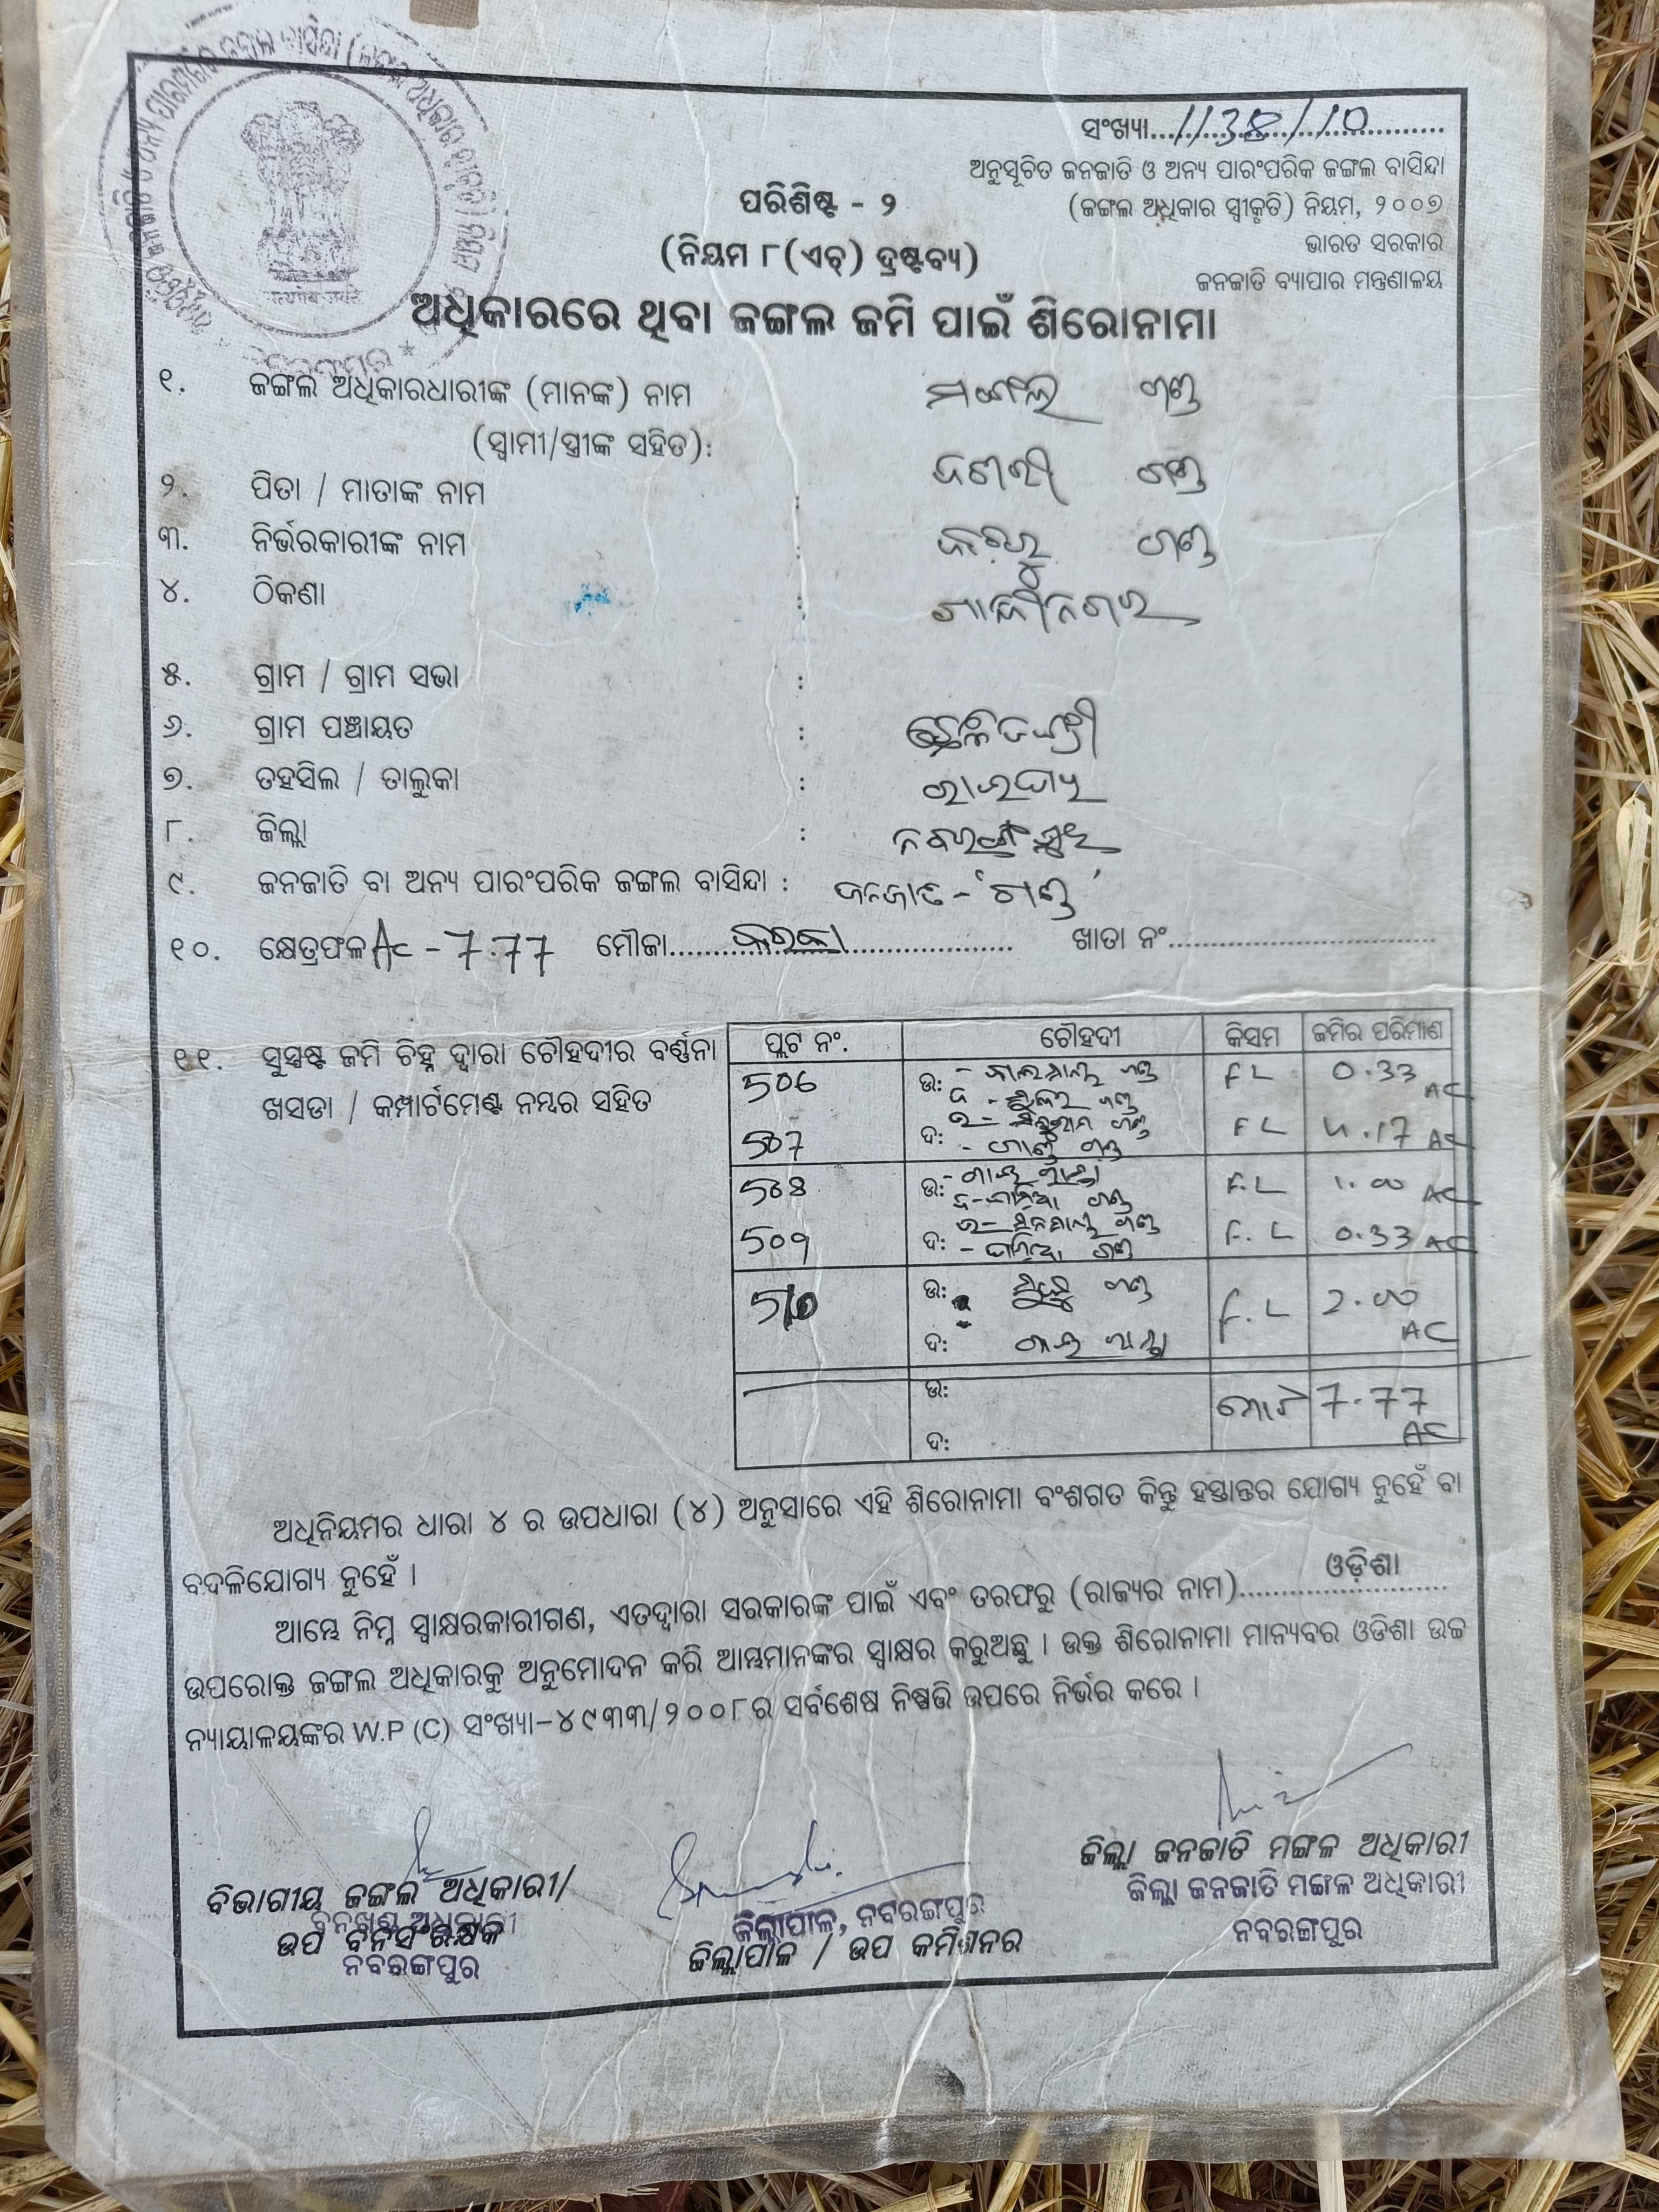 ସଂଖ୍ୟା....1138/10....
ଅନୁସୂଚିତ ଜନଜାତି ଓ ଅନ୍ୟ ପାରଂପରିକ ଜଙ୍ଗଲ ବାସିନ୍ଦା
(ଜଙ୍ଗଲ ଅଧିକାର ସ୍ୱୀକୃତି) ନିୟମ, ୨୦୦୭
ଭାରତ ସରକାର
ଜନଜାତି ବ୍ୟାପାର ମନ୍ତ୍ରଣାଳୟ
ପରିଶିଷ୍ଟ - ୨
(ନିୟମ ୮(ଏଚ୍) ଦ୍ରଷ୍ଟବ୍ୟ)
ଅଧିକାରରେ ଥିବା ଜଙ୍ଗଲ ଜମି ପାଇଁ ଶିରୋନାମା
୧. ଜଙ୍ଗଲ ଅଧିକାରଧାରୀଙ୍କ (ମାନଙ୍କ) ନାମ ମଙ୍ଗଲ ଗଣ୍ଡ
(ସ୍ୱାମୀ/ସ୍ତ୍ରୀଙ୍କ ସହିତ):
୨. ପିତା / ମାତାଙ୍କ ନାମ : ଗଣ୍ଡ
୩. ନିର୍ଭରକାରୀଙ୍କ ନାମ : ଗଣ୍ଡ
୪. ଠିକଣା : ଗାନ୍ଧୀନଗର
୫. ଗ୍ରାମ / ଗ୍ରାମ ସଭା :
୬. ଗ୍ରାମ ପଞ୍ଚାୟତ :
୭. ତହସିଲ / ତାଲୁକା : ରାଇଘର
୮. ଜିଲ୍ଲା : ନବରଙ୍ଗପୁର
୯. ଜନଜାତି ବା ଅନ୍ୟ ପାରଂପରିକ ଜଙ୍ଗଲ ବାସିନ୍ଦା : ଜନଜାତି - 'ଗଣ୍ଡ'
୧୦. କ୍ଷେତ୍ରଫଳ Ac - 7.77 ମୌଜା.....କରକା..... ଖାତା ନଂ..........
୧୧. ସୁସ୍ପଷ୍ଟ ଜମି ଚିହ୍ନ ଦ୍ୱାରା ଚୌହଦୀର ବର୍ଣ୍ଣନା
ଖସଡା / କମ୍ପାର୍ଟମେଣ୍ଟ ନମ୍ବର ସହିତ
ପ୍ଲଟ ନଂ. ଚୌହଦୀ କିସମ ଜମିର ପରିମାଣ
506 ଉ: ଗଣ୍ଡ FL 0.33 AC
507 ଦ: ଗଣ୍ଡ FL 4.17 AC
508 ଉ: F.L 1.00 AC
509 ଦ: ଗଣ୍ଡ F.L 0.33 AC
510 ଉ: ଗଣ୍ଡ F.L 2.00 AC
ଦ:
ଉ: ମୋଟ 7.77 AC
ଦ:
ଅଧିନିୟମର ଧାରା ୪ ର ଉପଧାରା (୪) ଅନୁସାରେ ଏହି ଶିରୋନାମା ବଂଶଗତ କିନ୍ତୁ ହସ୍ତାନ୍ତର ଯୋଗ୍ୟ ନୁହେଁ ବା
ବଦଳିଯୋଗ୍ୟ ନୁହେଁ ।
ଆମ୍ଭେ ନିମ୍ନ ସ୍ୱାକ୍ଷରକାରୀଗଣ, ଏତଦ୍ୱାରା ସରକାରଙ୍କ ପାଇଁ ଏବଂ ତରଫରୁ (ରାଜ୍ୟର ନାମ)....ଓଡ଼ିଶା....
ଉପରୋକ୍ତ ଜଙ୍ଗଲ ଅଧିକାରକୁ ଅନୁମୋଦନ କରି ଆମ୍ଭମାନଙ୍କର ସ୍ୱାକ୍ଷର କରୁଅଛୁ । ଉକ୍ତ ଶିରୋନାମା ମାନ୍ୟବର ଓଡିଶା ଉଚ୍ଚ
ନ୍ୟାୟାଳୟଙ୍କର W.P (C) ସଂଖ୍ୟା-୪୯୩୩/୨୦୦୮ ର ସର୍ବଶେଷ ନିଷ୍ପତ୍ତି ଉପରେ ନିର୍ଭର କରେ ।
ବିଭାଗୀୟ ଜଙ୍ଗଲ ଅଧିକାରୀ/
ବନଖଣ୍ଡ ଅଧିକାରୀ
ଉପ ବନସଂରକ୍ଷକ
ନବରଙ୍ଗପୁର
ଜିଲ୍ଲାପାଳ, ନବରଙ୍ଗପୁର
ଜିଲ୍ଲାପାଳ / ଉପ କମିଶନର
ଜିଲ୍ଲା ଜନଜାତି ମଙ୍ଗଳ ଅଧିକାରୀ
ଜିଲ୍ଲା ଜନଜାତି ମଙ୍ଗଳ ଅଧିକାରୀ
ନବରଙ୍ଗପୁର